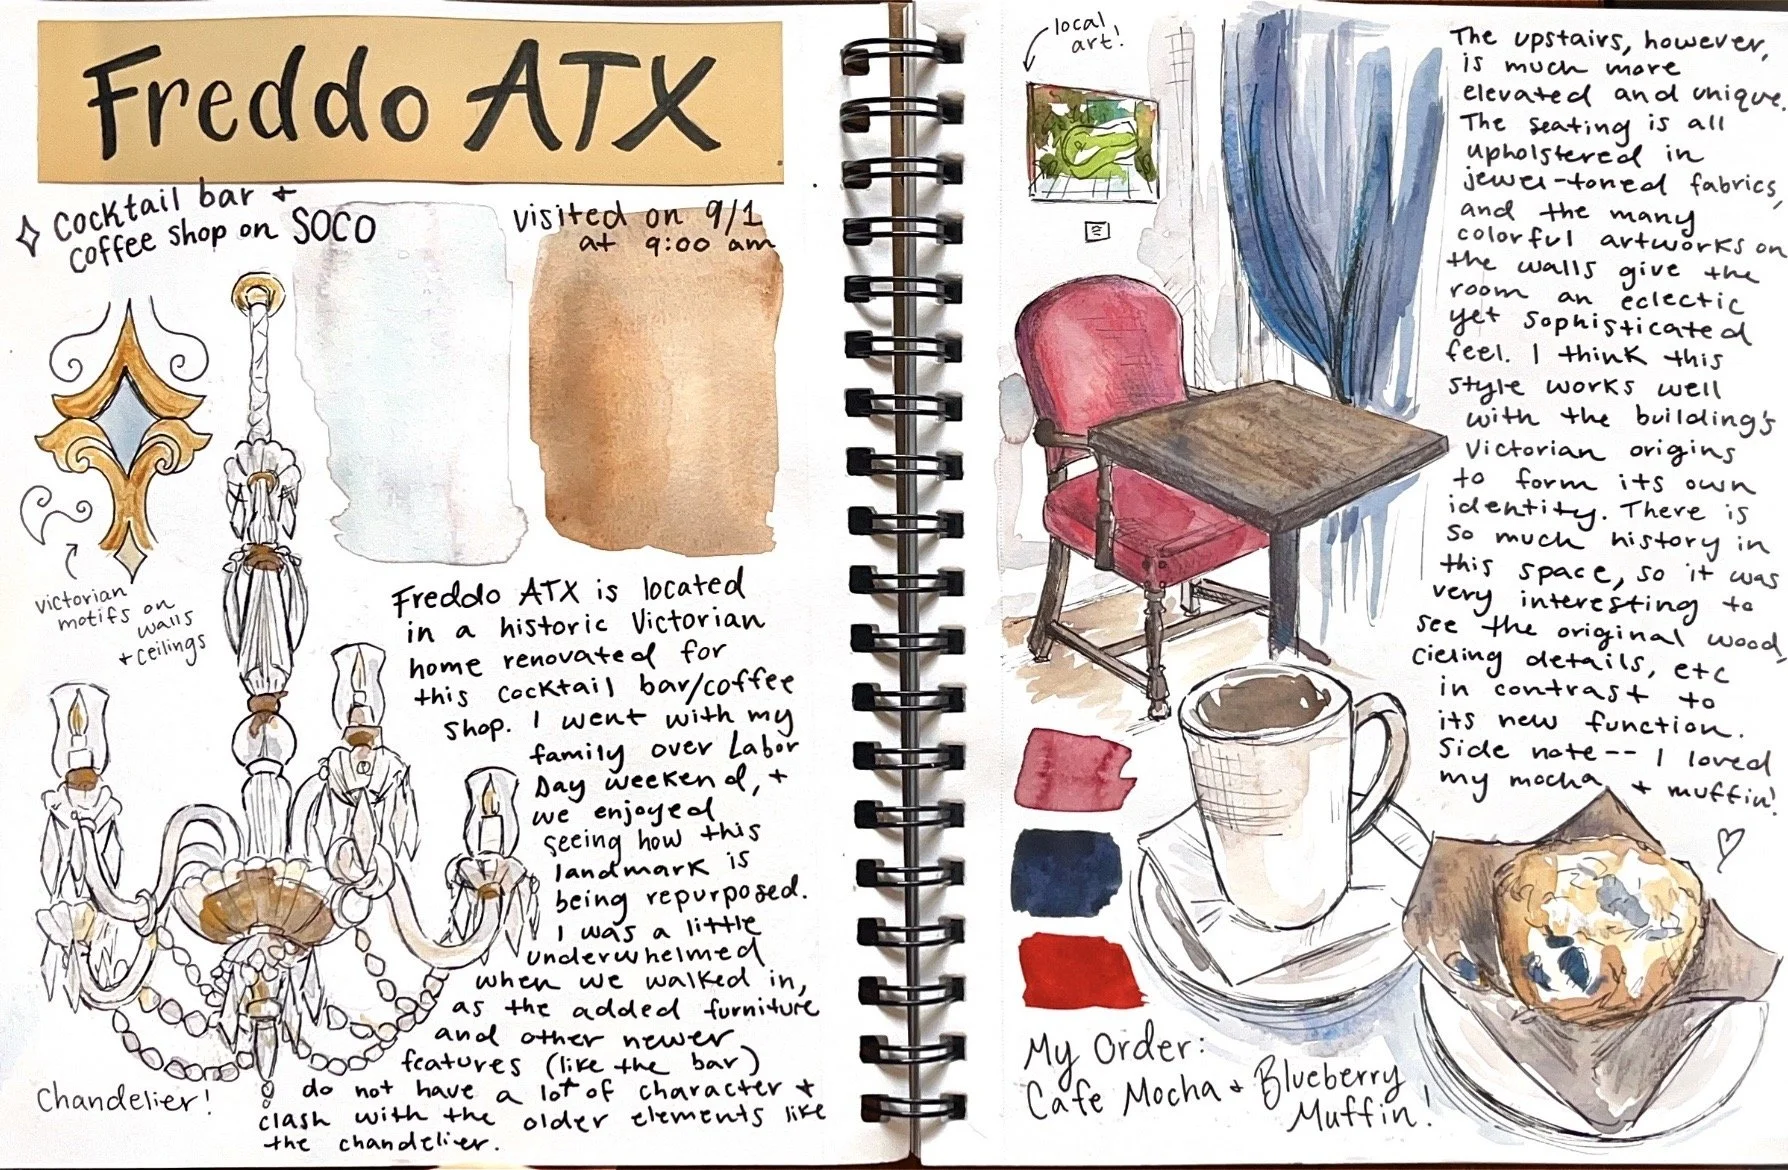 Freddo ATX
Cocktail bar +
coffee shop on SOCO
visited on 9/1
at 9:00 am
victorian
motifs on
walls
+ ceilings
Freddo ATX is located
in a historic Victorian
home renovated for
this cocktail bar/coffee
shop. I went with my
family over Labor
Day weekend, +
we enjoyed
seeing how this
landmark is
being repurposed.
I was a little
underwhelmed
when we walked in,
as the added furniture
and other newer
features (like the bar)
do not have a lot of character +
clash with the older elements like
the chandelier.
Chandelier!
local
art!
The upstairs, however,
is much more
elevated and unique.
The seating is all
upholstered in
jewel-toned fabrics,
and the many
colorful artworks on
the walls give the
room an eclectic
yet sophisticated
feel. I think this
style works well
with the building's
Victorian origins
to form its own
identity. There is
so much history in
this space, so it was
very interesting to
see the original wood,
cieling details, etc
in contrast to
its new function.
Side note-- I loved
my mocha + muffin!
My Order:
Cafe Mocha + Blueberry
Muffin!